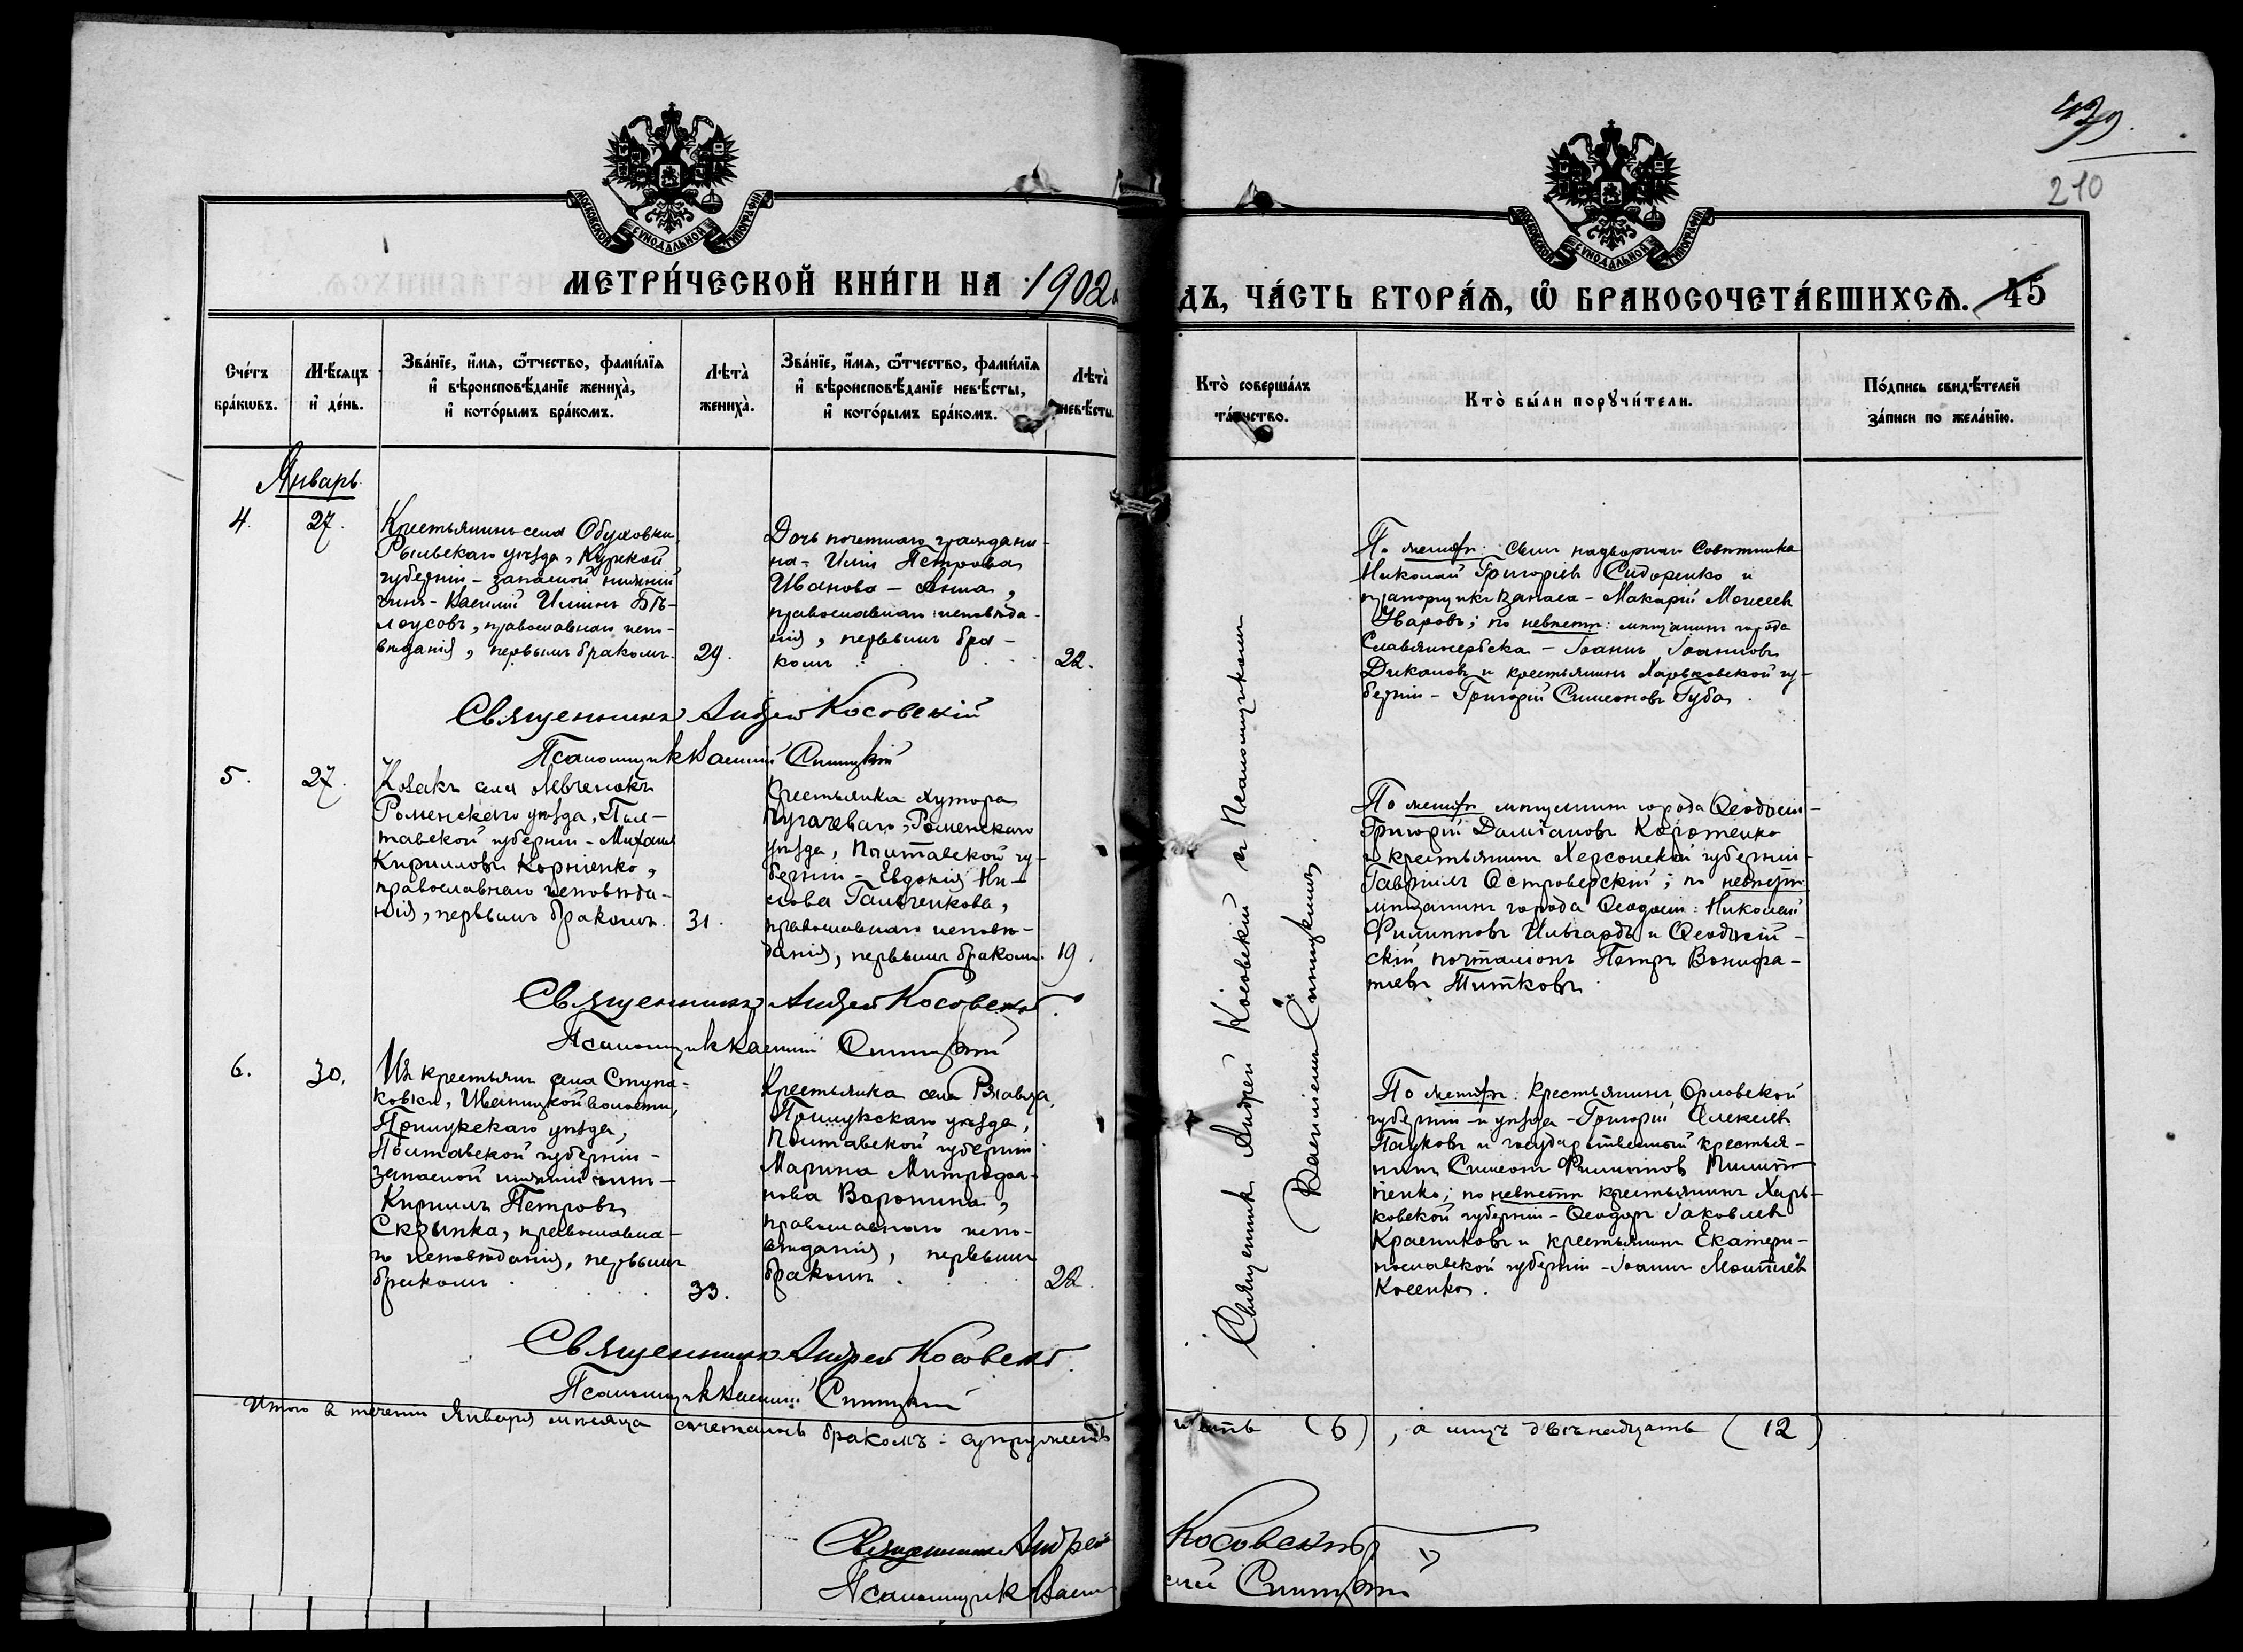 210
МОСКОВСКОЙ СѴНОДАЛЬНОЙ ТИПОГРАФІИ
МОСКОВСКОЙ СѴНОДАЛЬНОЙ ТИПОГРАФІИ
МЕТРИ́ЧЕСКОЙ КНИ́ГИ НА 1902
ДЪ, ЧА́СТЬ ВТОРА́Ѧ, Ѽ БРАКОСОЧЕТА́ВШИХСѦ. 45
Сче́тъ бра́кѡвъ.
Мѣ́сяцъ и҆ де́нь.
Зва́нїе, и҆́мѧ, ѻ҆́тчество, фами́лїѧ
и҆ вѣроисповѣ́данїе жениха̀,
и҆ кото́рымъ бра́комъ.
Лѣта̀ жениха̀.
Зва́нїе, и҆́мѧ, ѻ҆́тчество, фами́лїѧ
и҆ вѣроисповѣ́данїе невѣ́сты,
и҆ кото́рымъ бра́комъ.
Лѣта̀ невѣ́сты.
Кто̀ соверша́лъ
та́инство.
Кто̀ бы́ли порꙋчи́тели.
По́дпись свидѣ́телей
за́писи по жела́нїю.
Январь
4.
27.
Крестьянинъ села Обуховки
Рыльскаго уѣзда, Курской
губерніи – запасной нижній
чинъ – Василій Иліинъ Бѣ-
лоусовъ, православнаго испо-
вѣданія, первымъ бракомъ.
29.
Дочь почетнаго граждани-
на – Иліи Петрова
Иванова – Анна,
православнаго исповѣда-
нія, первымъ бра-
комъ
22.
По жениху: сынъ надворнаго Совѣтника
Николай Григоріевъ Сидоренко и
прапорщикъ запаса – Макарій Моисеевъ
Уваровъ; по невѣстѣ: мѣщанинъ города
Славяносербска – Іоаннъ Іоанновъ
Дикановъ и крестьянинъ Харьковской гу-
берніи – Григорій Симеоновъ Губа.
Священникъ Андрей Косовскій
Псаломщикъ Василій Синицкій
5.
27.
Козакъ села Левченокъ
Роменскаго уѣзда, Пол-
тавской губерніи – Михаилъ
Кирилловъ Корніенко,
православнаго исповѣда-
нія, первымъ бракомъ.
31.
Крестьянка хутора
Пугачеваго, Роменскаго
уѣзда, Полтавской гу-
берніи – Евдокія
Гальченкова,
православнаго исповѣ-
данія, первымъ бракомъ.
19.
По жениху мѣщанинъ города Ѳеодосіи –
Григорій Даміановъ Коротенко
и крестьянинъ Херсонской губерніи –
Гавріилъ Островерскій; по невѣстѣ
мѣщанинъ города Ѳеодосіи: Николай
Филипповъ и Ѳеодосій-
скій почталіонъ Петръ Вонифа-
тіевъ Титковъ
Священникъ Андрей Косовскій
Псаломщикъ Василій Синицкій
6.
30.
Изъ крестьянъ села Ступа-
ковки, Иваницкой волости,
Прилукскаго уѣзда,
Полтавской губерніи –
запасной нижній чинъ –
Кириллъ Петровъ
Скрынка, православна-
го исповѣданія, первымъ
бракомъ
33.
Крестьянка села
Прилукскаго уѣзда,
Полтавской губерніи
Марина Митрофа-
нова Воронина,
православнаго испо-
вѣданія, первымъ
бракомъ
22.
По жениху: крестьянинъ Орловской
губерніи и уѣзда – Григорій Алексеевъ
Пауковъ и государственный крестья-
нинъ Симеонъ
по невѣстѣ крестьянинъ Харь-
ковской губерніи – Ѳеодоръ Іаковлевъ
Красниковъ и крестьянинъ Екатери-
нославской губерніи – Іоаннъ
Косенко.
Священникъ Андрей Косовскій
Псаломщикъ Василій Синицкій
Священникъ Андрей Косовскій и Псаломщикомъ
Василіемъ Синицкимъ.
Итого въ теченіи Января мѣсяца сочетались бракомъ – супружествъ шесть (6), а лицъ двѣнадцать (12)
Священникъ Андрей Косовскій
Псаломщикъ Василій Синицкій